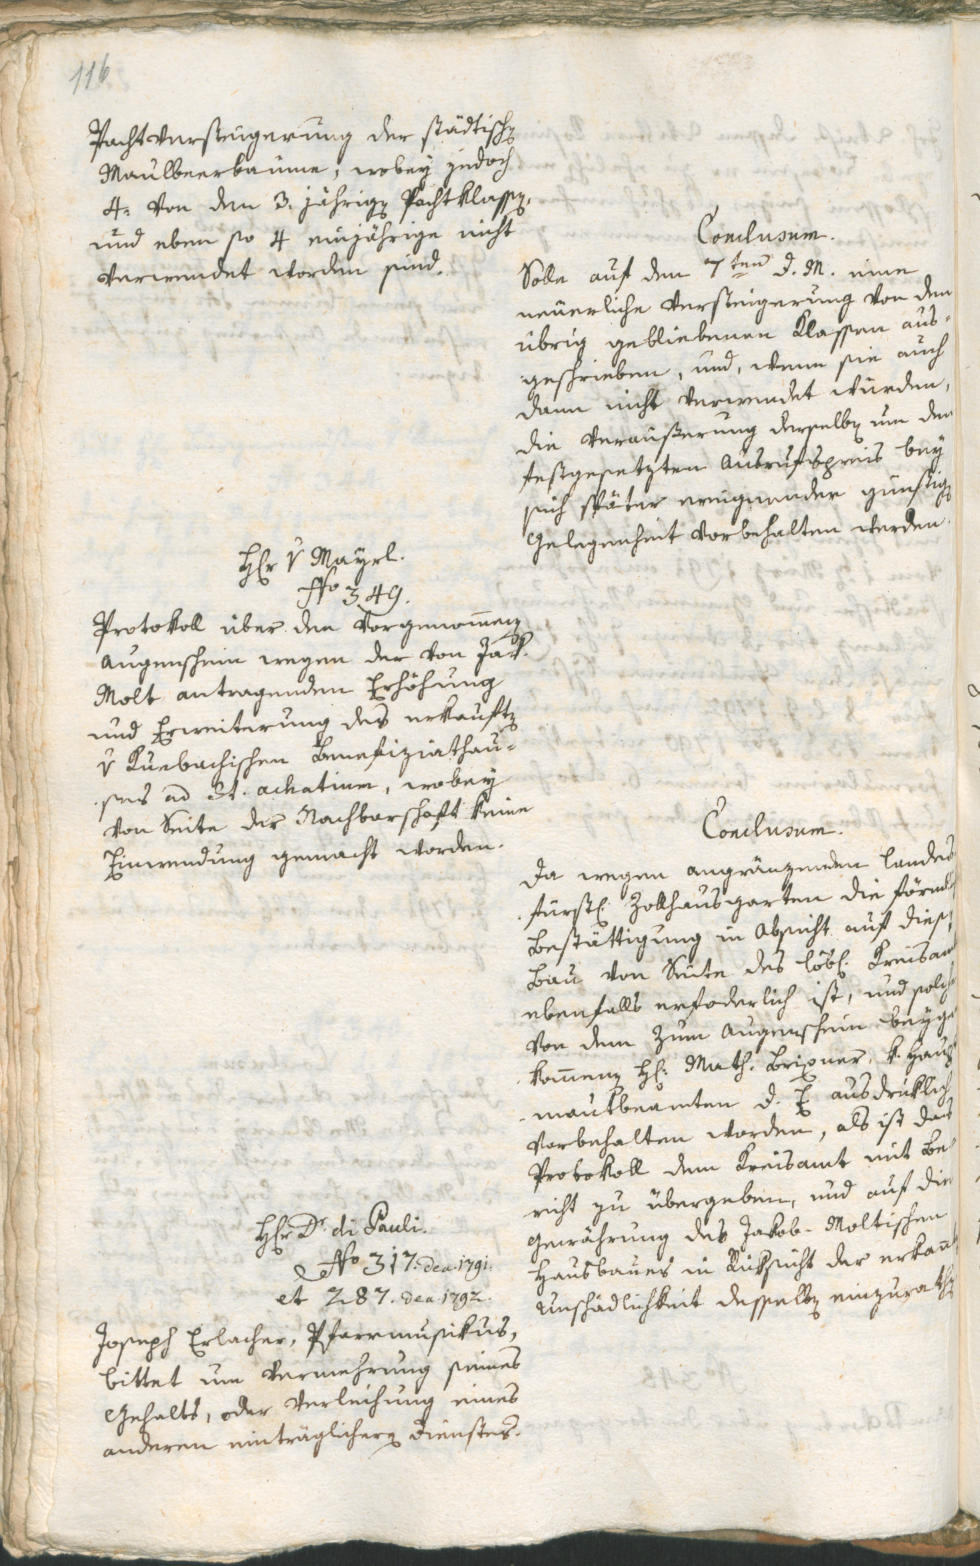 116
Pachtversteigerung der städtisch
Maulbeerbäume, wobey jedoch
4. von den 3. jährig Pachtklass,
und eben so 4 einjährige nicht
verwendet worden sind.
Conclusum.
Solle auf den 7ten d. M. eine
neuerliche Versteigerung von den
übrig gebliebenen Klassen aus-
geschrieben, und, wenn sie auch
dann nicht verwendet würden,
die Veräußerung derselb um den
festgesetzten Ausrufspreis bey
sich später ereignender günstig
Gelegenheit vorbehalten werden.
Hr v Mayrl.
No 349.
Protokoll über den vorgenommen
Augenschein wegen der von Jak.
Molt antragenden Erhöhung
und Erweiterung des erkauft
v Kuebachischen Benefiziathau-
ses ad St. achatium, wobey
von Seite der Nachbarschaft keine
Einwendung gemacht worden.
Conclusum.
Da wegen angränzenden landes
fürstl. Zollhausgarten die förml
Bestättigung in Absicht auf dies
Bau von Seite des löbl. Kreisam
ebenfalls erfoderlich ist, und solch
von dem zum Augenschein beyge
kommen H. Math. Brixner, k. Haup
mautbeamten d. E ausdrüklich
vorbehalten worden, als ist das
Protokoll dem Kreisamt mit Be
richt zu übergeben, und auf die
Gewährung des Jakob Moltischen
Hausbaues in Rüksicht der erkan
Unschädlichkeit desselb einzurath
Hr Dr di Pauli.
No 317. de a. 1791.
et 287. de a 1792.
Joseph Erlacher, Pfarrmusikus,
bittet um Vermehrung seines
Gehalts, oder Verleihung eines
anderen einträglicher Dienstes.